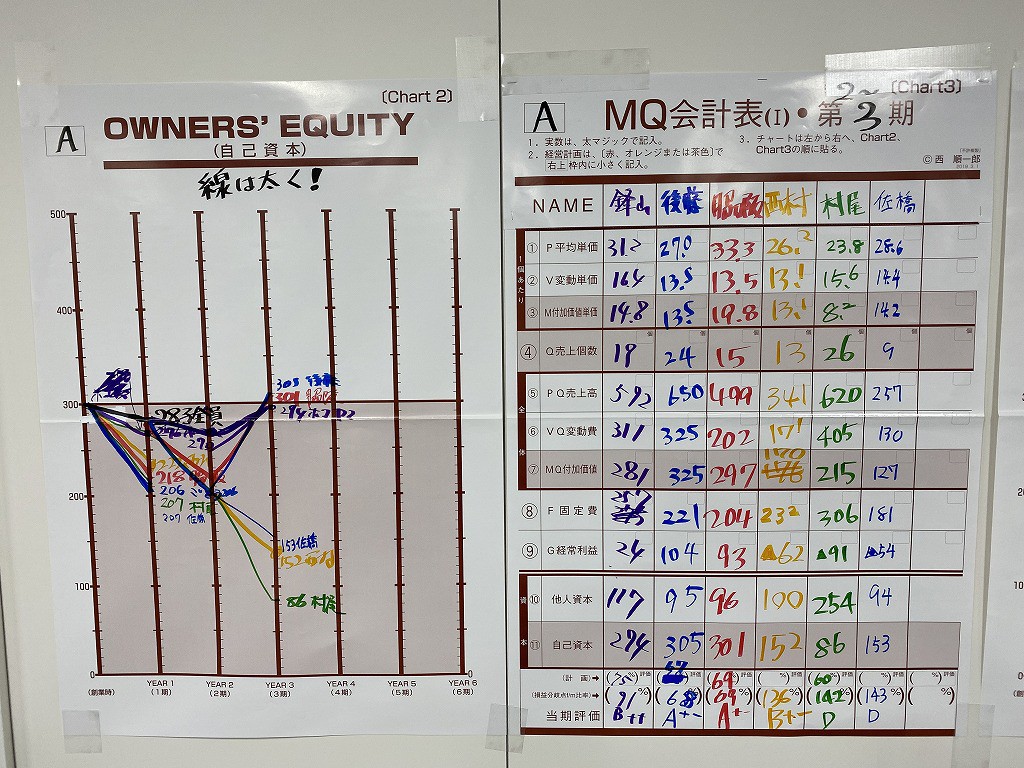 〔Chart 2〕
A
OWNERS' EQUITY
(自己資本)
線は太く!
500
400
300
200
100
0
283全員
218
206
207 村尾
207 佐橋
305 後藤
301
294
153 佐橋
152
86 村尾
(創業時)
YEAR 1 (1期)
YEAR 2 (2期)
YEAR 3 (3期)
YEAR 4 (4期)
YEAR 5 (5期)
YEAR 6 (6期)
〔Chart3〕
A
MQ会計表(I)・第 2~3 期
1. 実数は、太マジックで記入。
2. 経営計画は、〔赤、オレンジまたは茶色〕で
右上枠内に小さく記入。
3. チャートは左から右へ、Chart2、
Chart3の順に貼る。
© 西 順一郎
NAME 後藤 西村 村尾 佐橋
1個あたり
① P平均単価 31.2 27.0 33.3 26.2 23.8 28.6
② V変動単価 16.4 13.5 13.5 13.1 15.6 14.4
③ M付加価値単価 14.8 13.5 19.8 13.1 8.2 14.2
④ Q売上個数 19 24 15 13 26 9
全体
⑤ PQ売上高 592 650 499 341 620 257
⑥ VQ変動費 311 325 202 171 405 130
⑦ MQ付加価値 281 325 297 170 215 127
⑧ F固定費 257 221 204 232 306 181
⑨ G経常利益 24 104 93 ▲62 ▲91 ▲54
資本
⑩ 他人資本 117 95 96 100 254 94
⑪ 自己資本 294 305 301 152 86 153
(計 画)→ 69 60
(損益分岐点f/m比率)→ (91%) (68%) (69%) (136%) (142%) (143%) ( %)
当期評価 B++ A+- A+- B+- D D